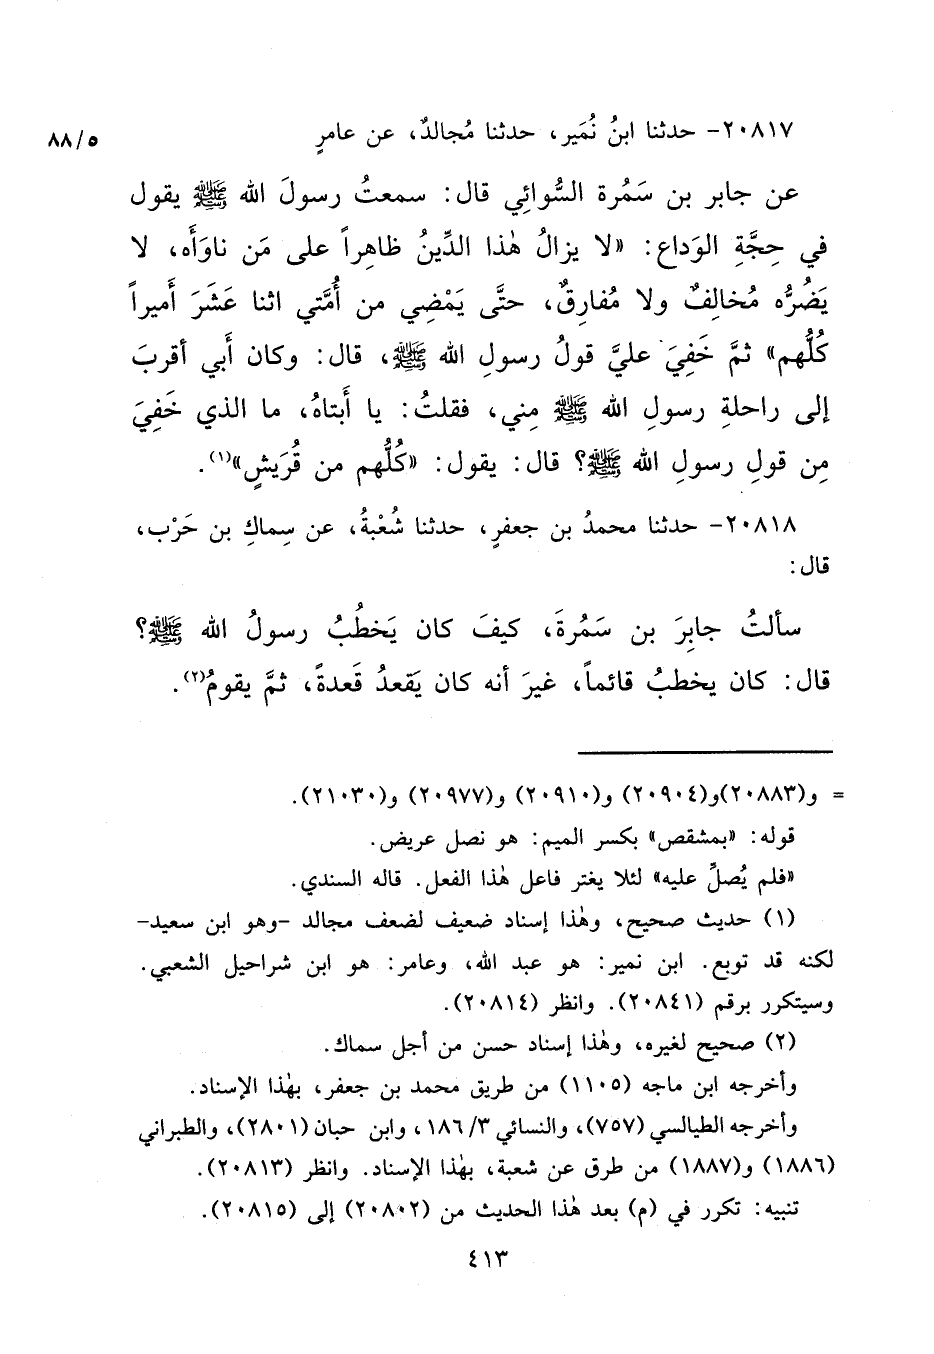 ٢٠٨١٧- حدثنا ابنُ نُمَير، حدثنا مُجالدٌ، عن عامرٍ
٨٨/٥
عن جابر بن سَمُرة السُّوائِي قال: سمعتُ رسولَ الله ﷺ يقول
في حِجَّةِ الوَداع: «لا يزالُ هٰذا الدِّينُ ظاهِراً على مَن ناوَأَه، لا
يَضُرُّه مُخالِفٌ ولا مُفارِقٌ، حتَّى يَمْضِي من أُمَّتي اثنا عَشَرَ أَميراً
كُلُّهم» ثمَّ خَفِيَ عليَّ قولُ رسولِ الله ﷺ، قال: وكان أَبي أقربَ
إلى راحلةِ رسولِ الله ﷺ مِني، فقلتُ: يا أَبتاهُ، ما الذي خَفِيَ
مِن قولِ رسولِ الله ﷺ؟ قال: يقول: «كُلُّهم من قُرَيشٍ»(١).
٢٠٨١٨- حدثنا محمدُ بن جعفرٍ، حدثنا شُعْبةُ، عن سِماكِ بن حَرْب،
قال:
سألتُ جابِرَ بن سَمُرةَ، كيفَ كان يَخطُبُ رسولُ الله ﷺ؟
قال: كان يخطبُ قائماً، غيرَ أنه كان يَقعدُ قَعدةً، ثمَّ يقومُ(٢).
= و(٢٠٨٨٣)و(٢٠٩٠٤) و(٢٠٩١٠) و(٢٠٩٧٧) و(٢١٠٣٠).
قوله: «بمشقص» بكسر الميم: هو نصل عريض.
«فلم يُصلِّ عليه» لئلا يغتر فاعل هٰذا الفعل. قاله السندي.
(١) حديث صحيح، وهٰذا إسناد ضعيف لضعف مجالد -وهو ابن سعيد-
لكنه قد توبع. ابن نمير: هو عبد الله، وعامر: هو ابن شراحيل الشعبي.
وسيتكرر برقم (٢٠٨٤١). وانظر (٢٠٨١٤).
(٢) صحيح لغيره، وهٰذا إسناد حسن من أجل سماك.
وأخرجه ابن ماجه (١١٠٥) من طريق محمد بن جعفر، بهٰذا الإسناد.
وأخرجه الطيالسي (٧٥٧)، والنسائي ١٨٦/٣، وابن حبان (٢٨٠١)، والطبراني
(١٨٨٦) و(١٨٨٧) من طرق عن شعبة، بهٰذا الإسناد. وانظر (٢٠٨١٣).
تنبيه: تكرر في (م) بعد هٰذا الحديث من (٢٠٨٠٢) إلى (٢٠٨١٥).
٤١٣